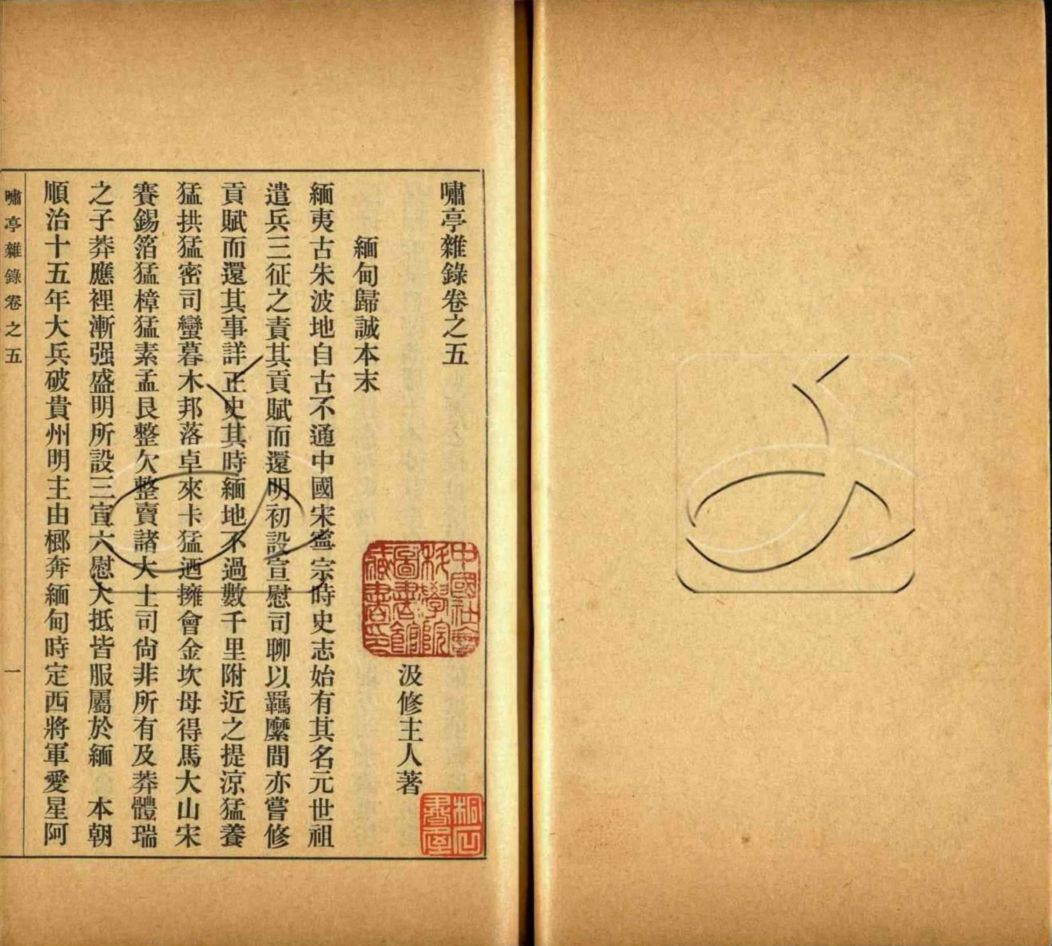 嘯亭雜錄卷之五
汲修主人著
緬甸歸誠本末
緬夷古朱波地自古不通中國宋寧宗時史志始有其名元世祖
遣兵三征之責其貢賦而還明初設宣慰司聊以羈縻間亦嘗修
貢賦而還其事詳正史其時緬地不過數千里附近之提涼猛養
猛拱猛密司蠻暮木邦落卓來卡猛迺擁會金坎母得馬大山宋
賽錫箔猛樟猛素孟艮整欠整賣諸大土司尙非所有及莽體瑞
之子莽應裡漸强盛明所設三宣六慰大抵皆服屬於緬 本朝
順治十五年大兵破貴州明主由榔奔緬甸時定西將軍愛星阿
嘯亭雜錄卷之五
一
中國社會
科學院
圖書館
藏書印